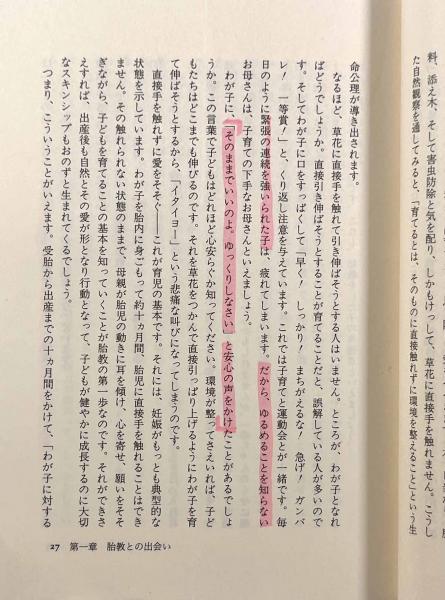 料、添え木、そして害虫防除と気を配り、しかもけっして、草花に直接手を触れません。こうし
た自然観察を通してみると、「育てるとは、そのものに直接触れずに環境を整えること」という生
命公理が導き出されます。
　なるほど、草花に直接手を触れて引き伸ばそうとする人はいません。ところが、わが子となれ
ばどうでしょうか。直接引き伸ばそうとすることが育てることだと、誤解している人が多いので
す。そしてわが子に口をすっぱくして「早く！　しっかり！　まちがえるな！　急げ！　ガンバ
レ！　一等賞！」と、くり返し注意を与えています。これでは子育てと運動会とが一緒です。毎
日のように緊張の連続を強いられた子は、疲れてしまいます。だから、ゆるめることを知らない
お母さんは、子育ての下手なお母さんといえましょう。
　わが子に、「そのままでいいのよ。ゆっくりしなさい」と安心の声をかけたことがあるでしょ
うか。この言葉で子どもはどれほど心安らぐか知ってください。環境が整ってさえいれば、子ど
もたちはどこまでも伸びるのです。それを草花をつかんで直接引っぱり上げるようにわが子を育
て伸ばそうとするから、「イタイヨー」という悲痛な叫びになってしまうのです。
　直接手を触れずに愛をそそぐ――これが育児の基本です。それには、妊娠がもっとも典型的な
状態を示しています。わが子を胎内に身ごもって約十ヵ月間、胎児に直接手を触れることはでき
ません。その触れられない状態のままで、母親が胎児の動きに耳を傾け、心を寄せ、願いをそそ
ぎながら、子どもを育てることの基本を知っていくことが胎教の第一歩なのです。それができさ
えすれば、出産後も自然とその愛が形となり行動となって、子どもが健やかに成長するのに大切
なスキンシップもおのずと生まれてくるでしょう。
　つまり、こういうことがいえます。受胎から出産までの十ヵ月間をかけて、「わが子に対する
27　第一章　胎教との出会い